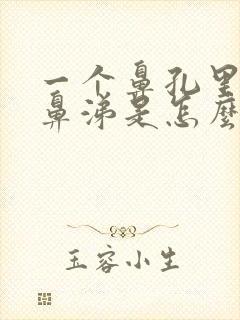 一个鼻孔里
鼻涕是怎麼
玉容小生